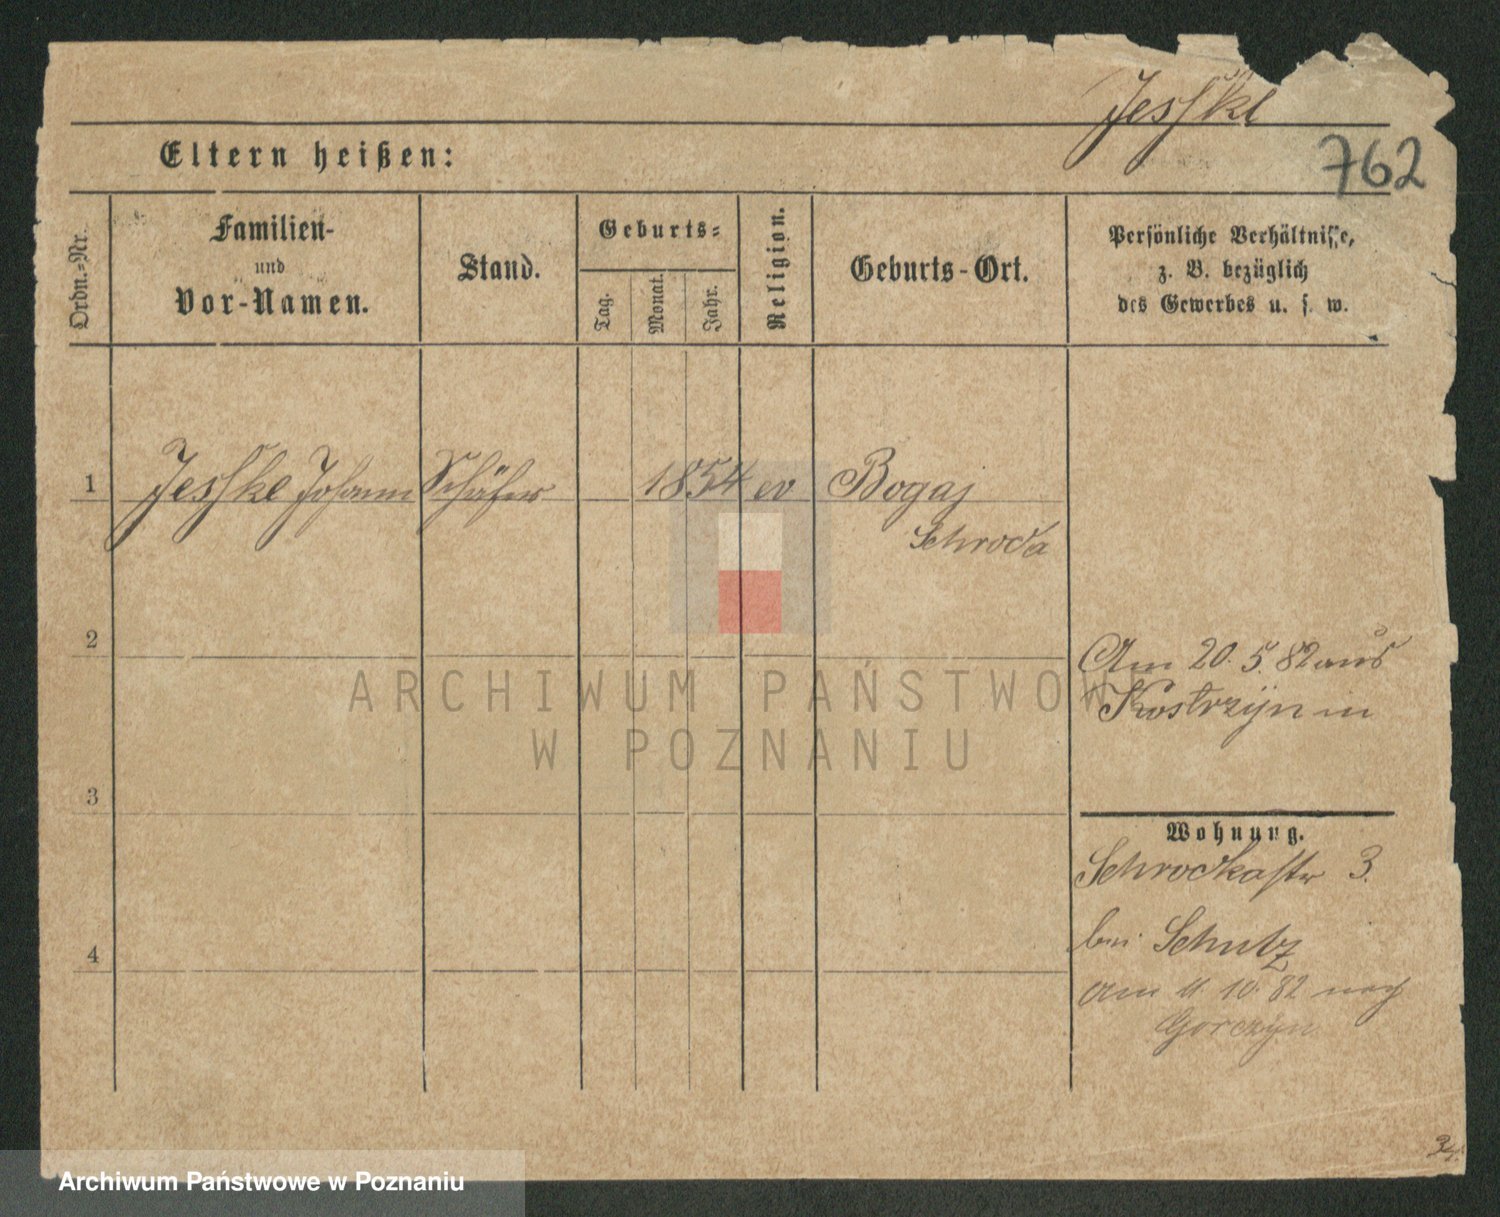 Jeschke
762
Eltern heißen:
Ordn.=Nr.
Familien-
und
Vor-Namen.
Stand.
Geburts=
Tag.
Monat.
Jahr.
Religion.
Geburts-Ort.
Persönliche Verhältnisse,
z. B. bezüglich
des Gewerbes u. s. w.
1 Jeschke Johann Schäfer 1854 ev Bogaj
Schroda
2
Am 20. 5. 82 aus
Kostrzyn in
ARCHIWUM PAŃSTWOWE
W POZNANIU
3
Wohnung.
Schrodkastr 3.
bei Schutz
4
am 11 10. 82 nach
Gorczyn
34.
Archiwum Państwowe w Poznaniu